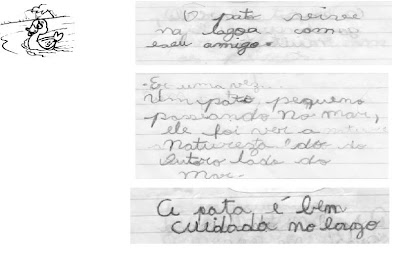 O pato vive
na lagoa com
seu amigo.
-Era uma vez
Um pato pequeno
passeando no mar,
ele foi ver a
natureza do
outoro lado do
mar.
A pata é bem
cuidada no lago